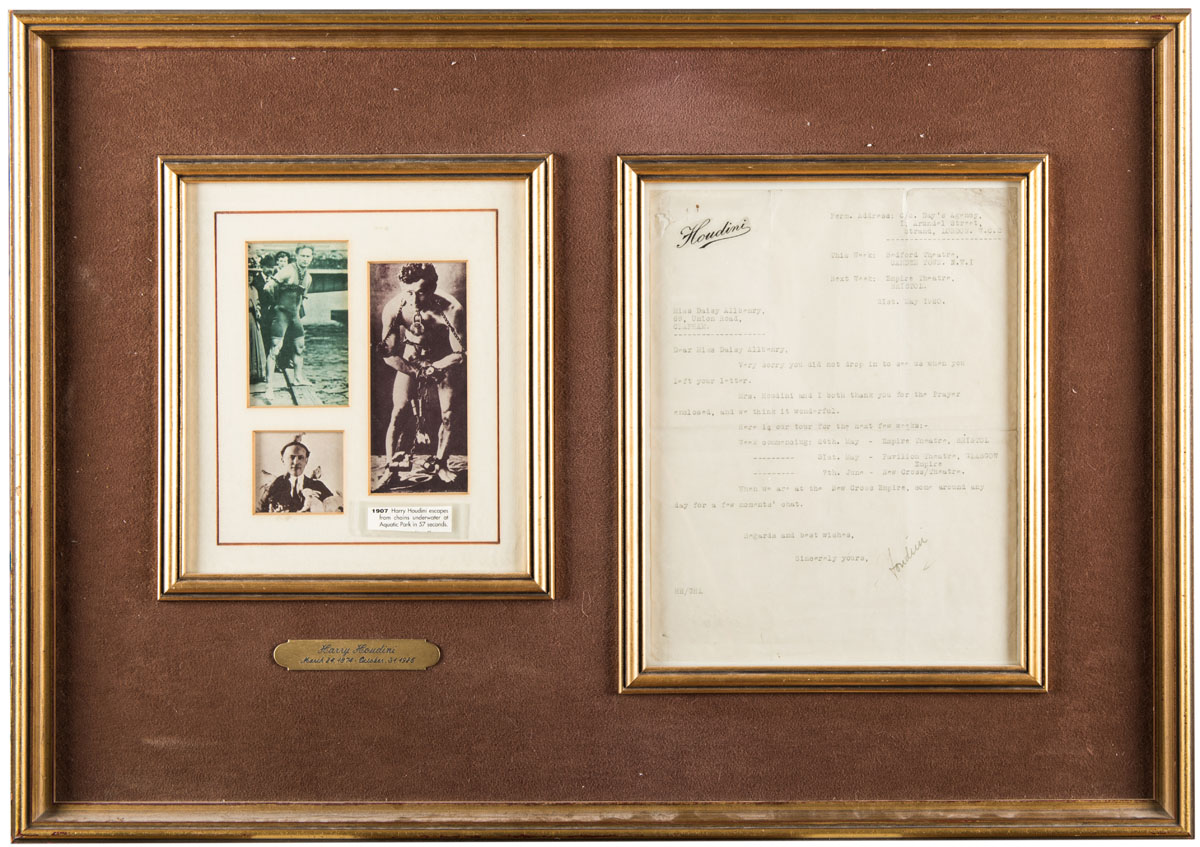 1907 Harry Houdini escapes
from chains underwater at
Aquatic Park in 57 seconds.
Harry Houdini
March 24 1874 - October 31 1926
Houdini
Perm. Address: c/o. Day's Agency,
Arundel Street,
Strand, LONDON. W.C.2
This Week: Bedford Theatre,
CAMDEN TOWN. N.W.1
Next Week: Empire Theatre,
BRISTOL.
21st. May
Miss Daisy
Union Road,
CLAPHAM.
Dear Miss Daisy
Very sorry you did not drop in to see us when you
left your letter.
Mrs. Houdini and I both thank you for the Prayer
enclosed, and we think it wonderful.
Here is our tour for the next few weeks:-
Week commencing: 24th. May - Empire Theatre, BRISTOL
-------- 31st. May - Pavilion Theatre, GLASGOW
Empire
-------- 7th. June - New Cross/Theatre.
When we are at the New Cross Empire, come around any
day for a few moments' chat.
Regards and best wishes,
Sincerely yours,
Houdini